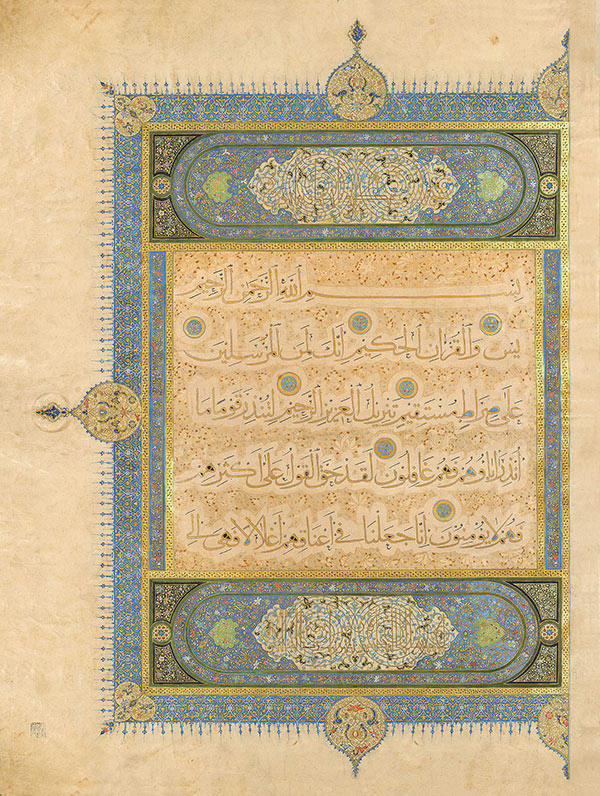 بسم الله الرحمن الرحيم
يس والقران الحكيم انك لمن المرسلين
على صراط مستقيم تنزيل العزيز الرحيم لتنذر قوما ما
انذر اباؤهم فهم غافلون لقد حق القول على اكثرهم
فهم لا يؤمنون انا جعلنا في اعناقهم اغلالا فهي الى